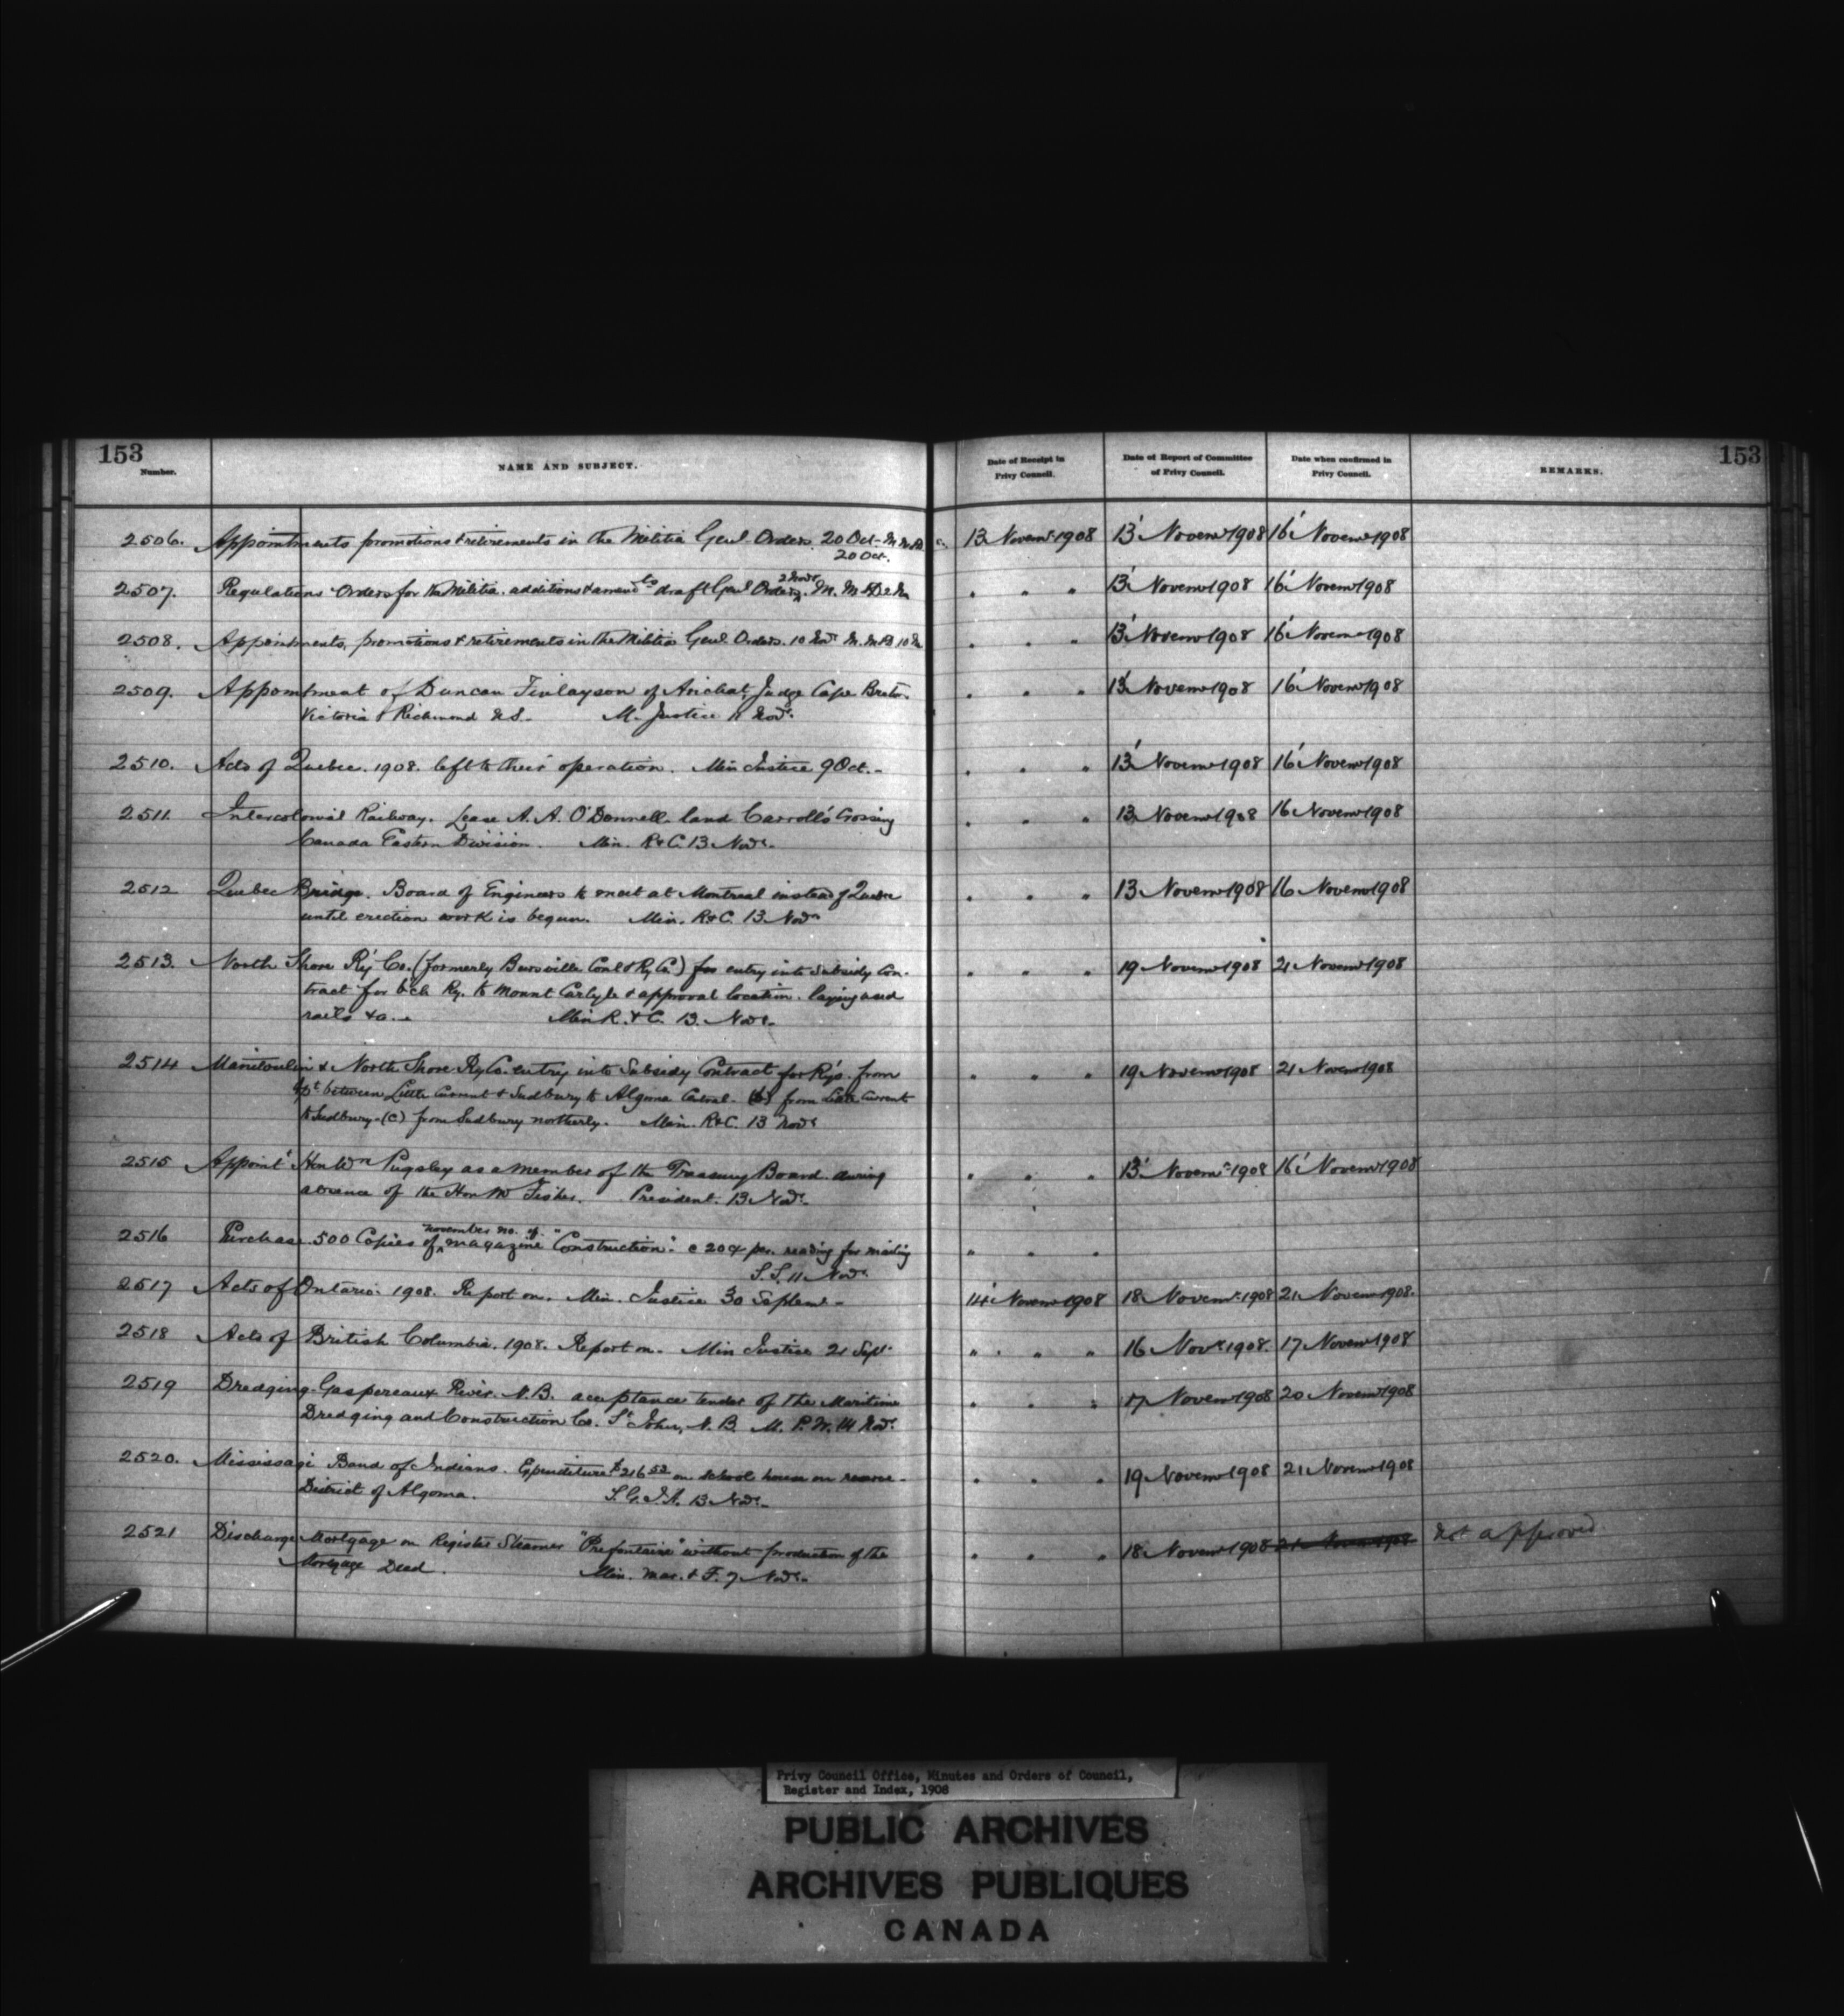 153
153
Number.
NAME AND SUBJECT.
Date of Receipt in Privy Council.
Date of Report of Committee of Privy Council.
Date when confirmed in Privy Council.
REMARKS.
2506. Appointments promotions & retirements in the Militia Genl Orders 20 Oct- 13 Novemr 1908 13 Novemr 1908 16 Novemr 1908
20 Oct.
2507. Regulations Orders for the Militia. additions & amendts draft Genl Orders 2 Novr. " " " 13 Novemr 1908 16 Novemr 1908
2508. Appointments, promotions & retirements in the Militia Genl Orders. 10 Novr " " " 13 Novemr 1908 16 Novemr 1908
2509. Appointment of Duncan Finlayson of Arichat, Judge Cape Breton " " " 13 Novemr 1908 16 Novemr 1908
Victoria & Richmond N.S. M. Justice 11 Novr.
2510. Acts of Quebec. 1908. left to their operation. Min Justice 9 Oct.- " " " 13 Novemr 1908 16 Novemr 1908
2511. Intercolonial Railway. Lease A. A. O'Donnell land Carroll's Crossing " " " 13 Novemr 1908 16 Novemr 1908
Canada Eastern Division. Min. R&C. 13 Novr.
2512 Quebec Bridge. Board of Engineers to meet at Montreal instead of Quebec " " " 13 Novemr 1908 16 Novemr 1908
until erection work is begun. Min. R&C. 13 Novr
2513. North Shore Ry Co. (formerly Beersville Coal & Ry Co.) for entry into Subsidy Con- " " " 19 Novemr 1908 21 Novemr 1908
tract for bch Ry. to Mount Carlyle & approval location. laying used
rails &a. Min R. & C. 13. Novr.
2514 Manitoulin & North Shore Ry Co. entry into Subsidy Contract for Rys. from " " " 19 Novemr 1908 21 Novemr 1908
pt between Little Current & Sudbury to Algoma Central. (b) from Little Current
to Sudbury-(c) from Sudbury northerly. Min. R&C. 13 Novr
2515 Appoint' Hon Wm Pugsley as a member of the Treasury Board during " " " 13 Novemr 1908 16 Novemr 1908
absence of the Hon Mr Fisher. President. 13 Novr.
2516 Purchase 500 Copies of november no. of magazine "Construction" @ 20¢ per. ready for mailing " " "
S.S. 11 Novr.
2517 Acts of Ontario 1908. Report on. Min. Justice 30 Septemr- 14 Novemr 1908 18 Novemr 1908 21 Novemr 1908.
2518 Acts of British Columbia. 1908. Report on. Min Justice 21 Sept. " " " 16 Novr 1908. 17 Novemr 1908
2519 Dredging Gaspereaux River. N.B. acceptance tender of the Maritime " " " 17 Novemr 1908 20 Novemr 1908
Dredging and Construction Co. St John, N.B. M. P. W. 14 Novr.
2520. Mississagi Band of Indians. Expenditure $216 52 on school house on reserve- " " " 19 Novemr 1908 21 Novemr 1908
District of Algoma. S.G.I.A. 13 Novr.
2521 Discharge Mortgage on Register Steamer "Prefontaine" without production of the " " " 18 Novemr 1908 21 Novemr 1908 Not approved
Mortgage Deed. Min. Mar. & F. 7 Novr.
Privy Council Office, Minutes and Orders of Council,
Register and Index, 1908
PUBLIC ARCHIVES
ARCHIVES PUBLIQUES
CANADA